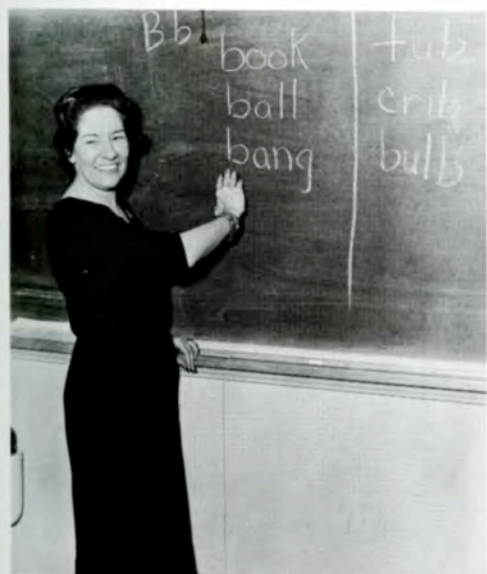 Bb
book
ball
bang
tub
crib
bulb